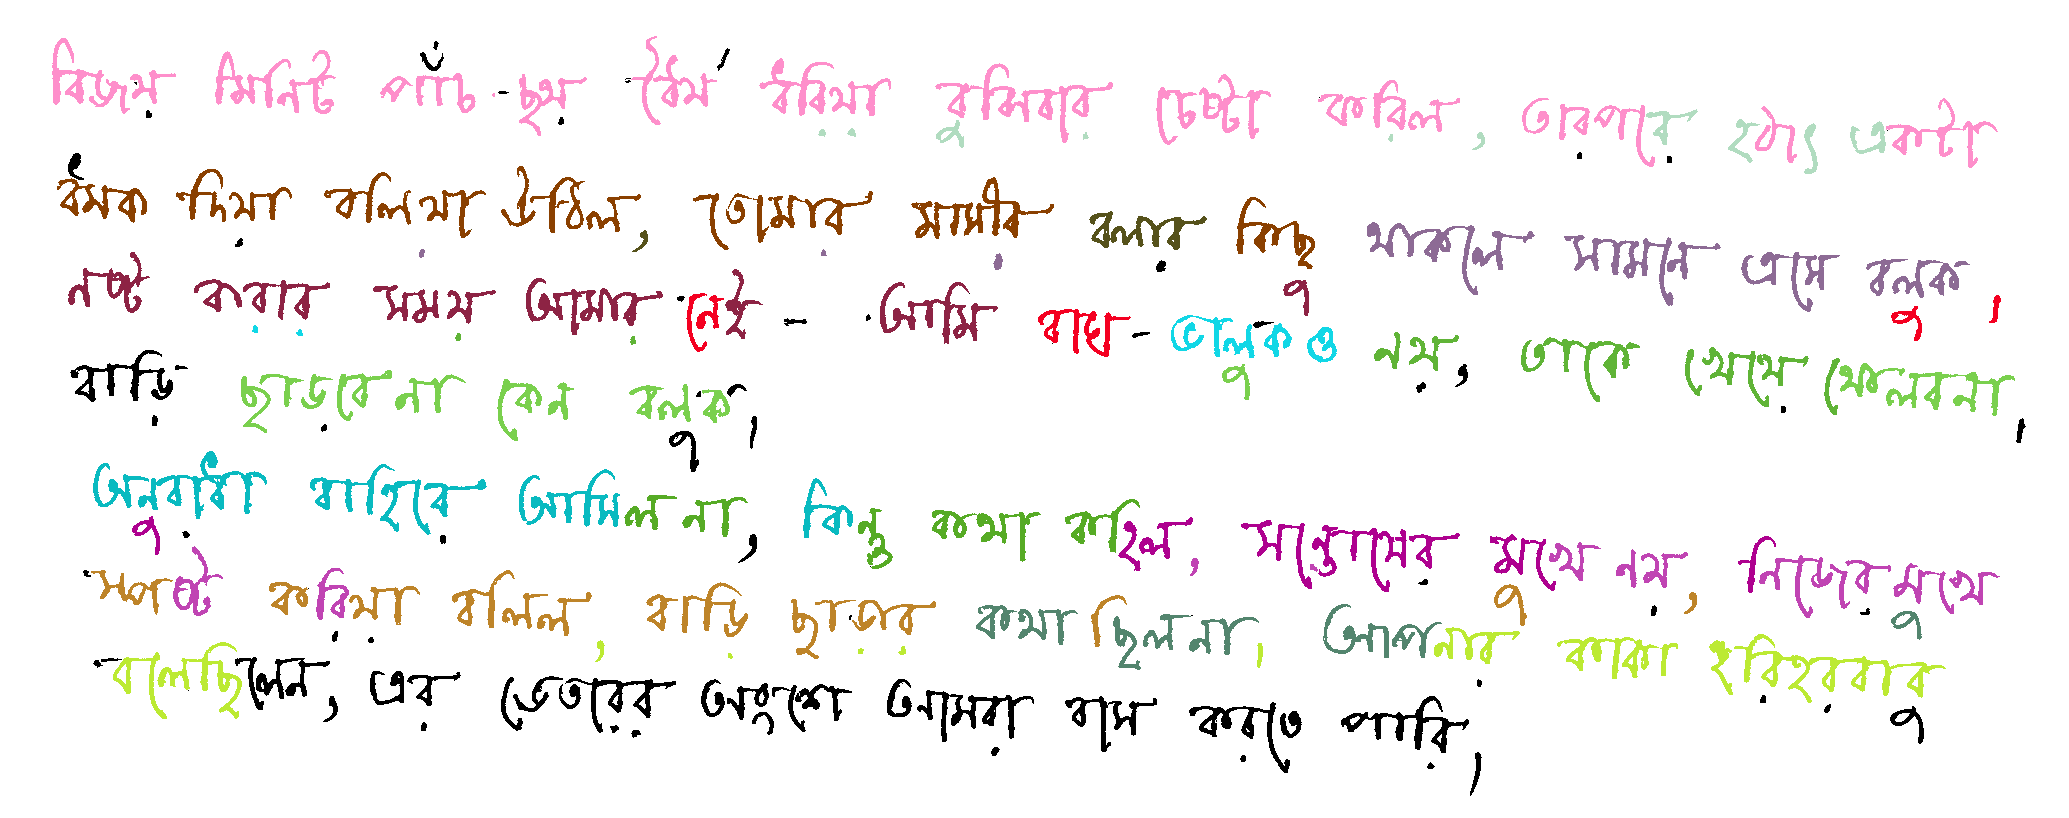 বিজয় মিনিট পাঁচ-ছয় ধৈর্য ধরিয়া বুঝিবার চেষ্টা করিল, তারপরে হঠাৎ একটা
ধমক দিয়া বলিয়া উঠিল, তোমার মাসীর বলার কিছু থাকলে সামনে এসে বলুক।
নষ্ট করবার সময় আমার নেই - আমি বাঘ-ভালুকও নয়, তাকে খেয়ে ফেলবনা।
বাড়ি ছাড়বেনা কেন বলুক।
অনুরাধা বাহিরে আসিল না, কিন্তু কথা কহিল, সন্তোষের মুখে নয়, নিজের মুখে
স্পষ্ট করিয়া বলিল, বাড়ি ছাড়ার কথা ছিলনা। আপনার কাকা হরিহরবাবু
বলেছিলেন, এর ভেতরের অংশে আমরা বাস করতে পারি।